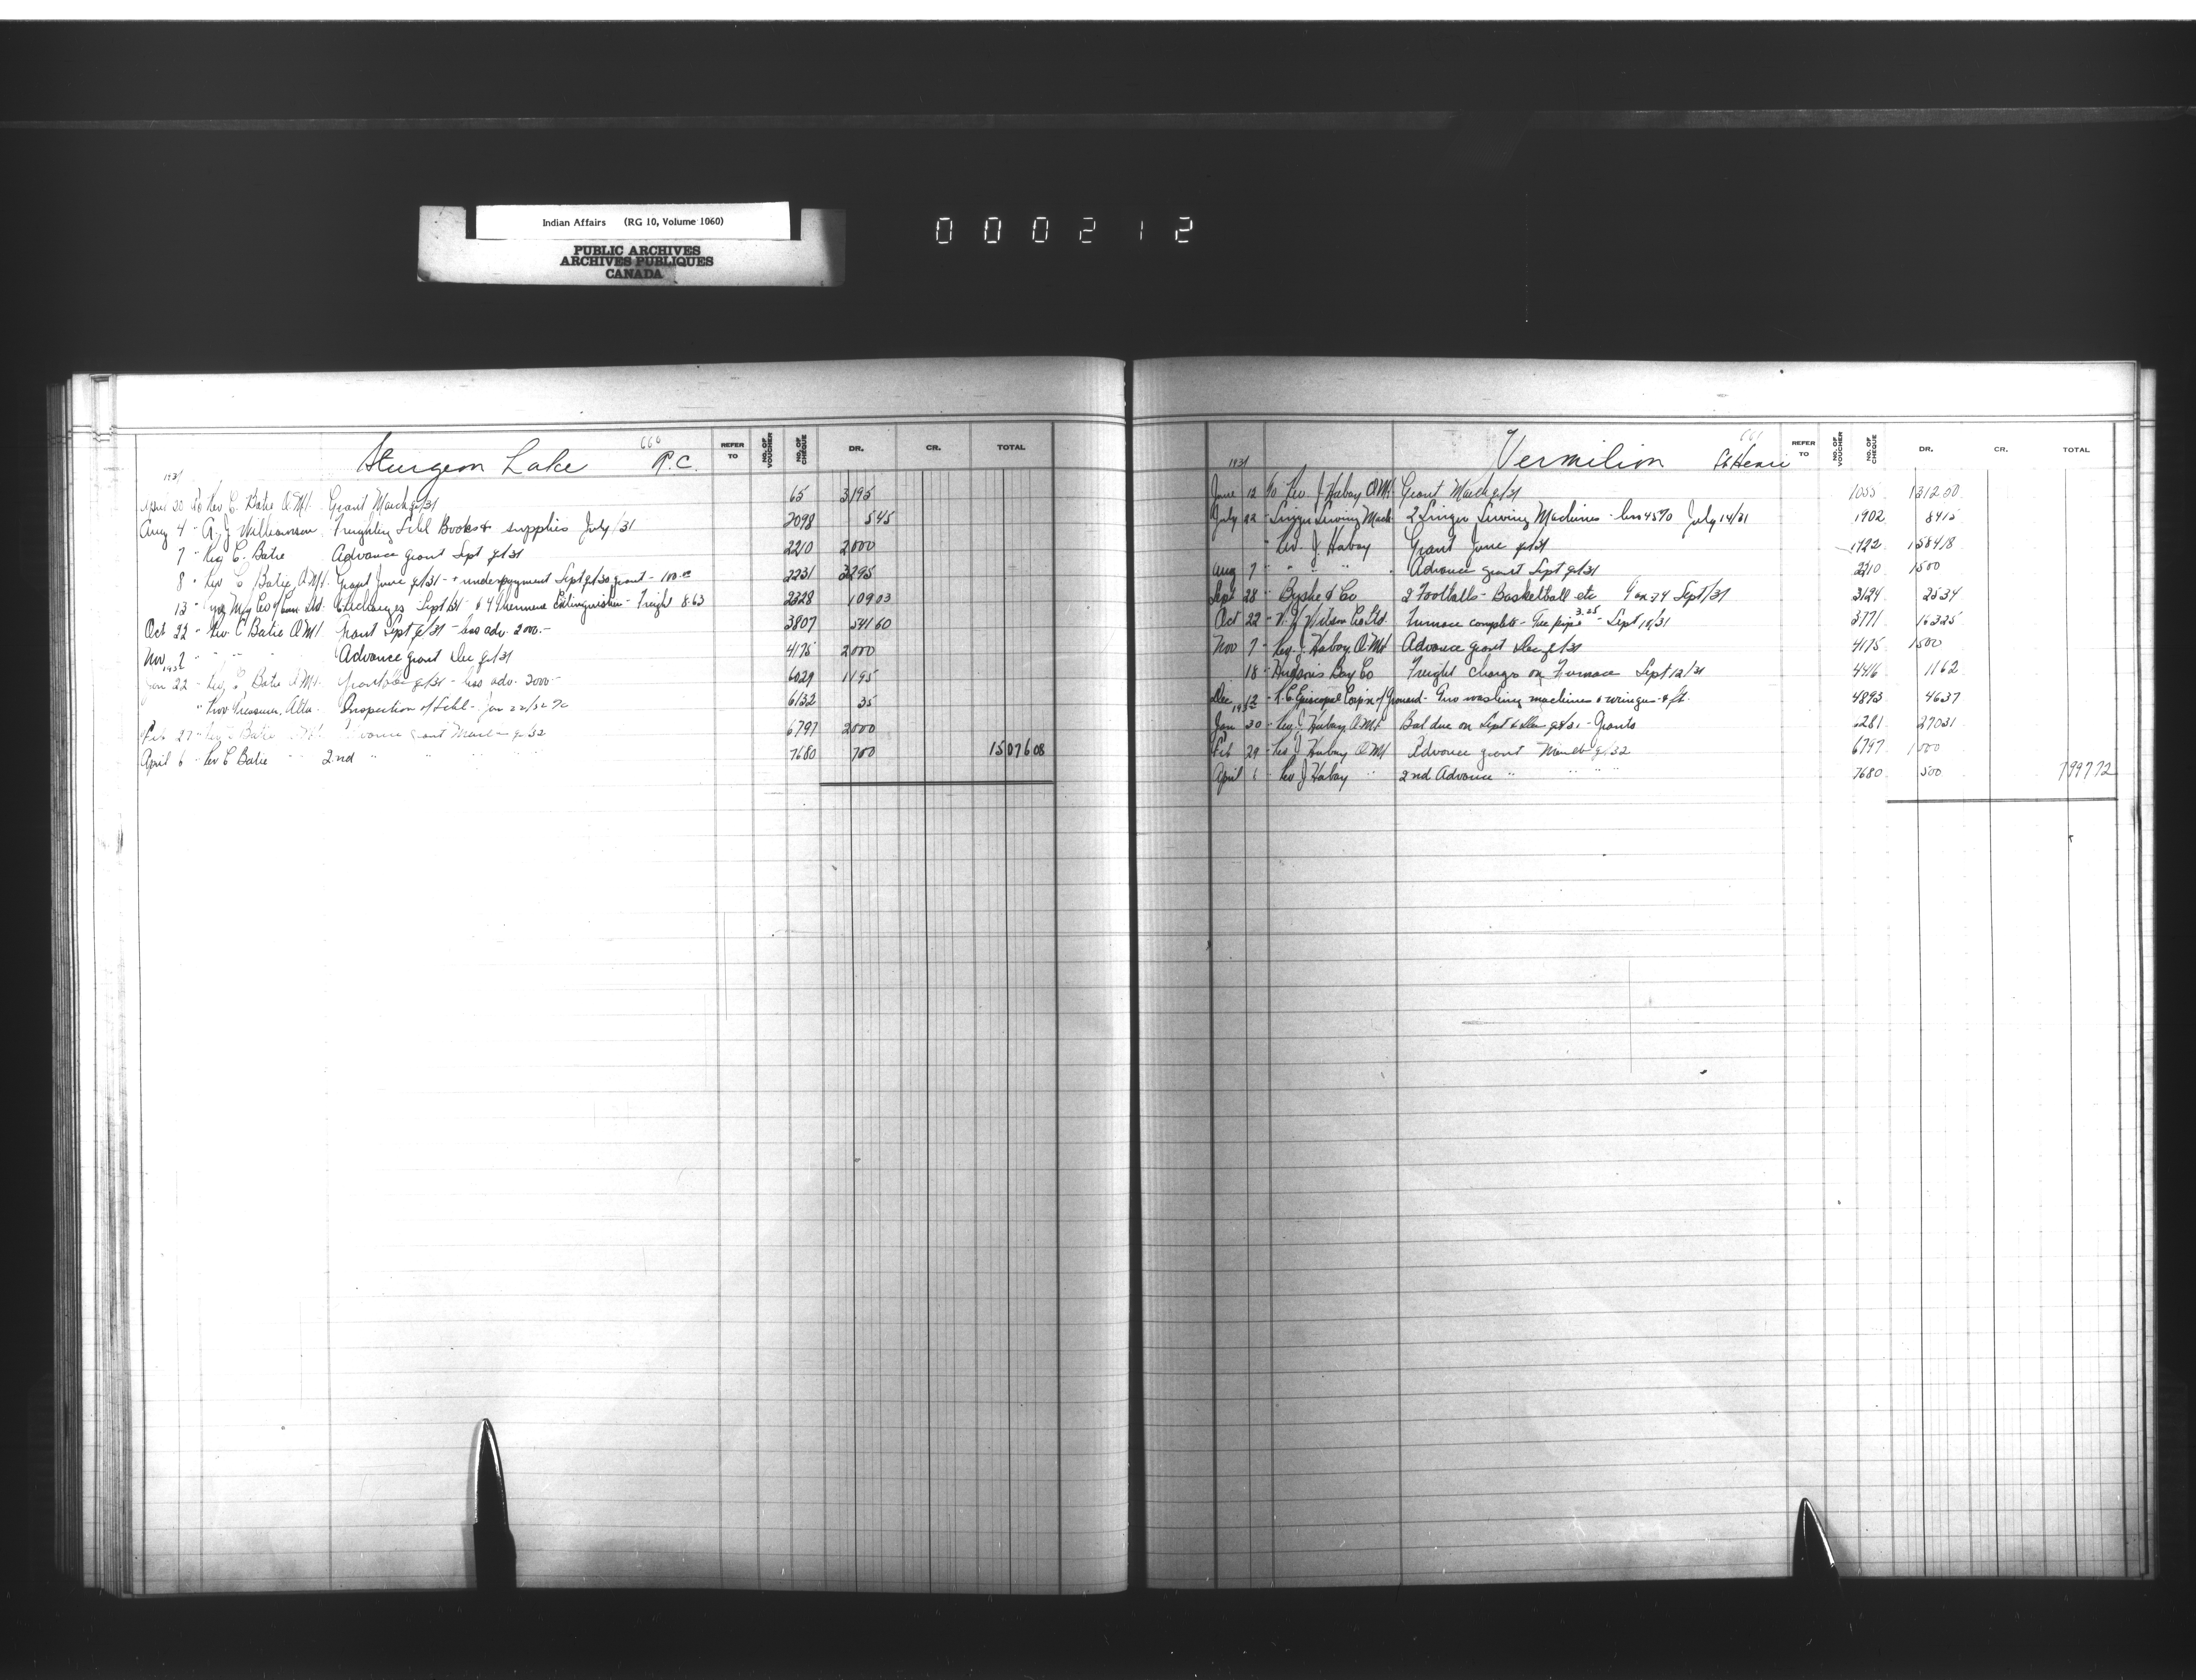 Indian Affairs (RG 10, Volume 1060)
PUBLIC ARCHIVES
ARCHIVES PUBLIQUES
CANADA
000212
Sturgeon Lake 660 R.C.
REFER TO NO. OF VOUCHER NO. OF CHEQUE DR. CR. TOTAL
1931
April 30 To Rev C. Batie O.M.I. Grant March q/31 65 3195
Aug 4 " A.J. Williamson Freighting Schl Books & supplies July/31 2098 5 45
7 " Rev C. Batie Advance grant Sept q/31 2210 2000
8 " Rev C Batie O.M.I. Grant June q/31 - & underpayment Sept q/30 grant - 100.00 2231 3295
13 " Mfg Co of Can. Ltd. Discharges Sept/31 & 4 Extinguishers - Freight 8.63 2328 109 03
Oct 22 " Rev C Batie O.M.I. Grant Sept q/31 - less adv. 2000.- 3807 541 60
Nov 7 " " " Advance grant Dec q/31 4175 2000
1932
Jan 22 " Rev C Batie O.M.I. Grant Dec q/31 - less adv. 2000- 6029 1195
" Prov Treasurer, Alta. Inspection of Schl - Jan 22/32 6132 35
Feb 27 " Rev C Batie O.M.I. Advance Grant March q/32 6797 2000
April 6 " Rev C Batie " " 2nd " " " " 7680 700 15076 08
Vermilion 661 St Henri
REFER TO NO. OF VOUCHER NO. OF CHEQUE DR. CR. TOTAL
1931
June 12 To Rev. J. Habay O.M.I. Grant March q/31 1055 1312 00
July 22 " Singer Sewing Mach 2 Singer Sewing Machines - less 45% July 14/31 1902 84 15
" Rev. J. Habay Grant June q/31 1922 1584 18
Aug 7 " " " " Advance grant Sept q/31 2210 1500
Sept 28 " Byshe & Co 2 Footballs - Basketball etc Sept/31 3124 25 34
Oct 22 " Wilson Co Ltd. Furnace complete - Tee pipe 3.25 - Sept 10/31 3771 163 25
Nov 7 " Rev. J. Habay O.M.I. Advance grant Dec q/31 4175 1500
18 " Hudson's Bay Co Freight Charges on Furnace Sept 12/31 4416 11 62
Dec 12 " R.C. Episcopal Corp'n of Grouard - Two washing machines & wringer & ft. 4893 46 37
1932
Jan 30 " Rev. J. Habay O.M.I. Bal due on Sept & Dec q's 31 - Grants 6281 270 31
Feb 29 " Rev J. Habay O.M.I. Advance grant March q/32 6797 1000
April 6 " Rev J Habay " 2nd Advance " " " " 7680 500 7997 72